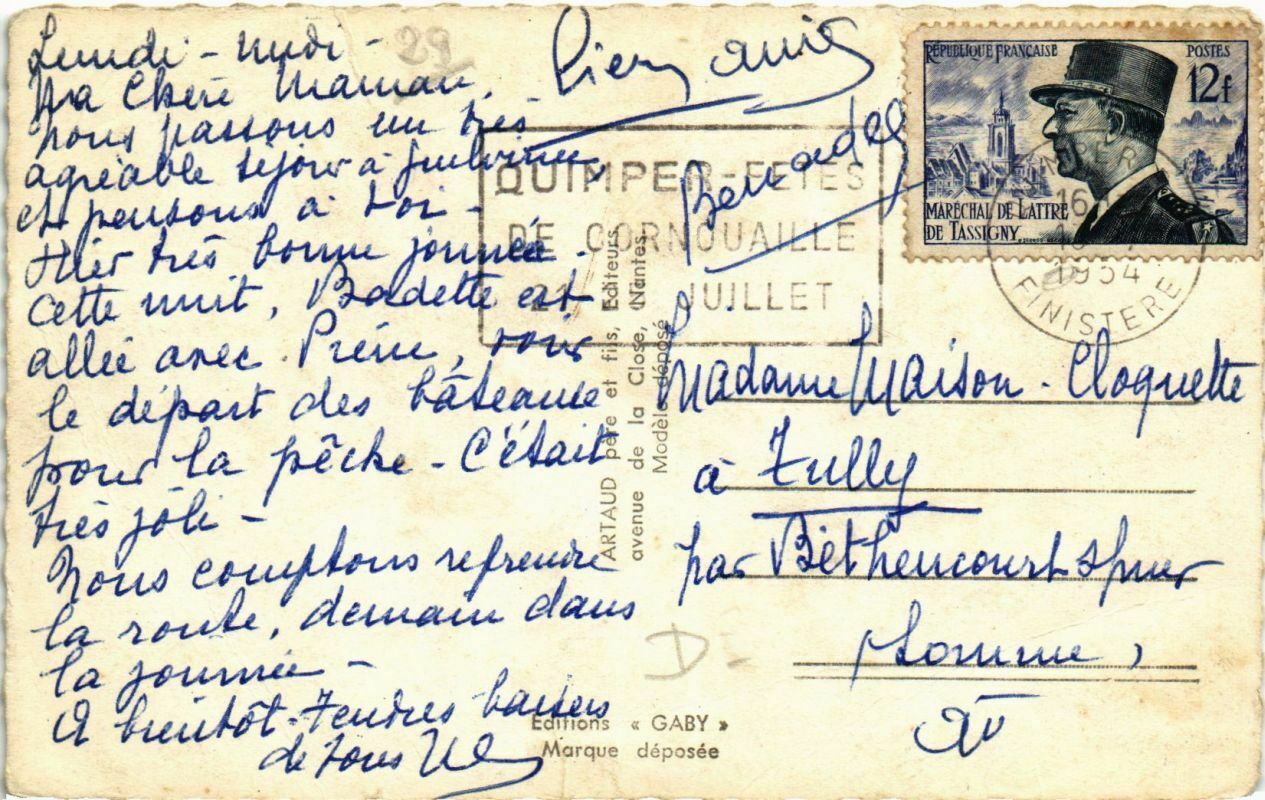 Lundi - midi -
Ma Chère Maman,
nous passons un très
agréable séjour à Guilvinec,
et pensons à toi -
Hier très bonne journée -
cette nuit, Badette est
allée avec voir
le départ des bâteaux
pour la pêche - C'était
très joli -
Nous comptons reprendre
la route, demain dans
la journée -
A bientôt - Tendres baisers
de tous
29
RÉPUBLIQUE FRANÇAISE POSTES
12f
MARÉCHAL DE LATTRE
DE TASSIGNY
QUIMPER-FÊTES
DE CORNOUAILLE
JUILLET
QUIMPER
16
1954
FINISTERE
ARTAUD père et fils, Editeurs
avenue de la Close, Nantes
Modèle déposé
Madame Maison - Cloquette
à Tully
par Béthencourt s/mer
Somme,
D
Editions « GABY »
Marque déposée